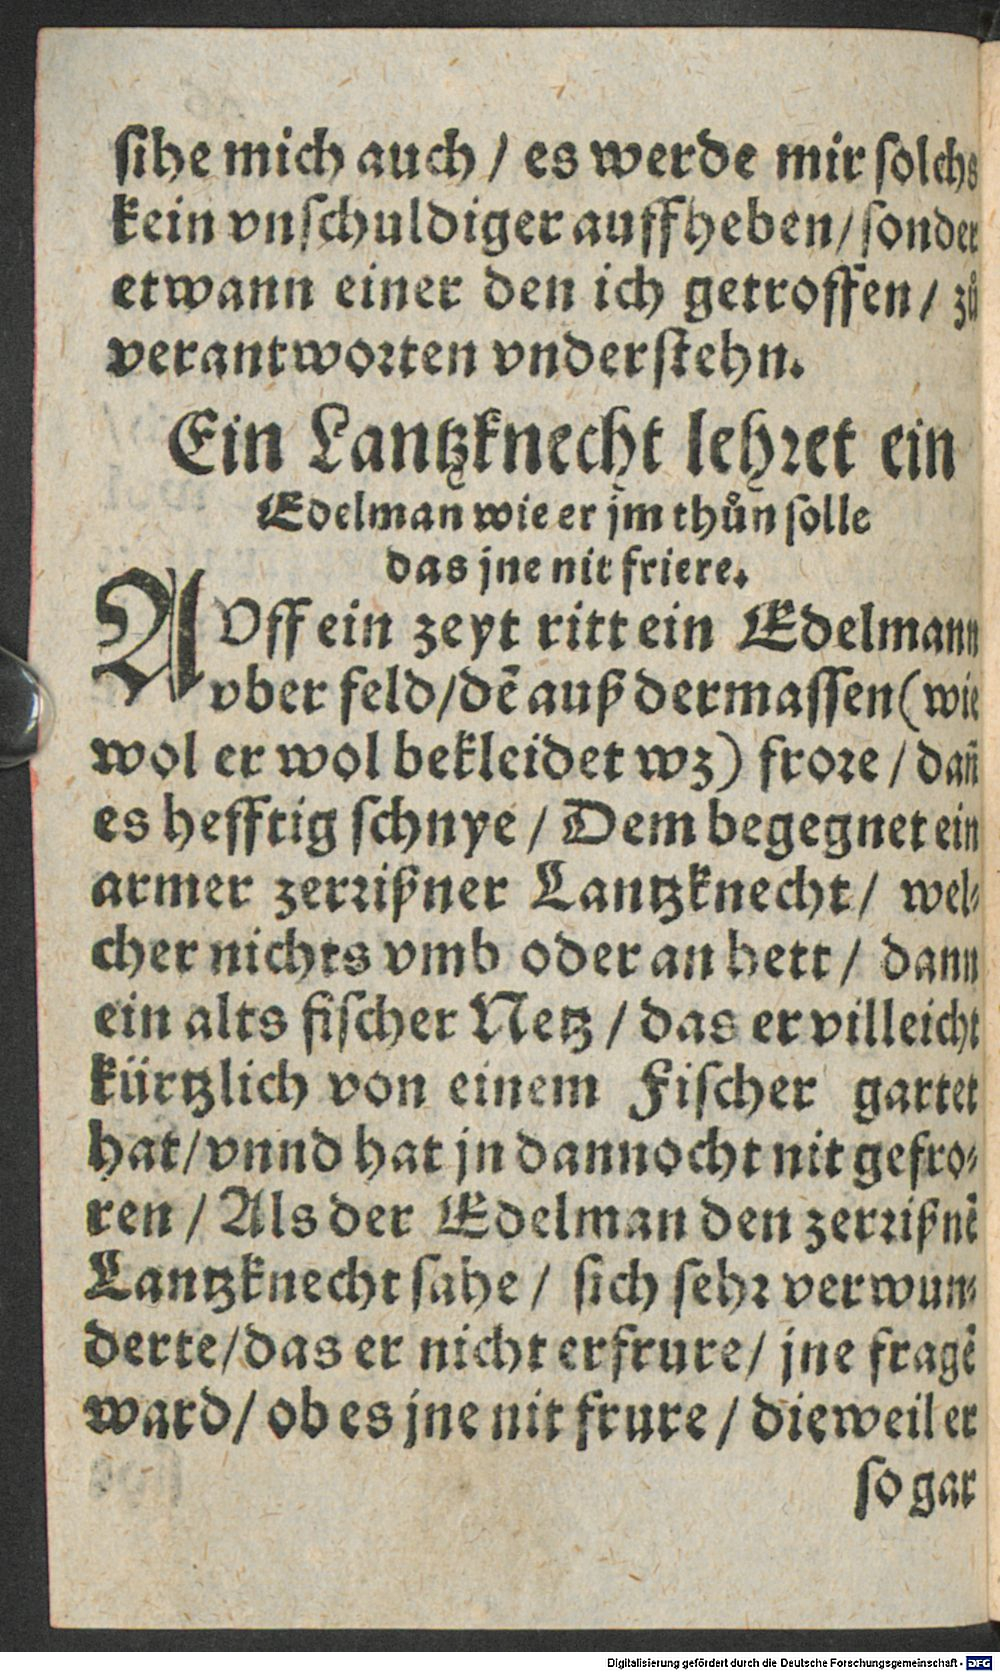 sihe mich auch / es werde mir solchs
kein vnschuldiger auffheben / sonder
etwann einer den ich getroffen / zů
verantworten vnderstehn.
Ein Lantzknecht lehret ein
Edelman wie er jm thůn solle
das jne nit friere.
AVff ein zeyt ritt ein Edelmann
vber feld / dẽ auß dermassen (wie
wol er wol bekleidet wz) frore / dañ
es hefftig schnye / Dem begegnet ein
armer zerrißner Lantzknecht / wel-
cher nichts vmb oder an hett / dann
ein alts fischer Netz / das er villeicht
kürtzlich von einem Fischer gartet
hat / vnnd hat jn dannocht nit gefro-
ren / Als der Edelman den zerrißnẽ
Lantzknecht sahe / sich sehr verwun-
derte / das er nicht erfrure / jne fragẽ
ward / ob es jne nit frure / dieweil er
so gar
Digitalisierung gefördert durch die Deutsche Forschungsgemeinschaft - DFG